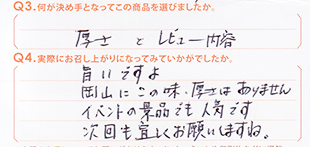 Q3.何が決め手となってこの商品を選びましたか。
厚さ と レビュー内容
Q4.実際にお召し上がりになってみていかがでしたか。
旨いですよ
岡山にこの味・厚さはありません
イベントの景品でも人気です
次回も宜しくお願いしますね。